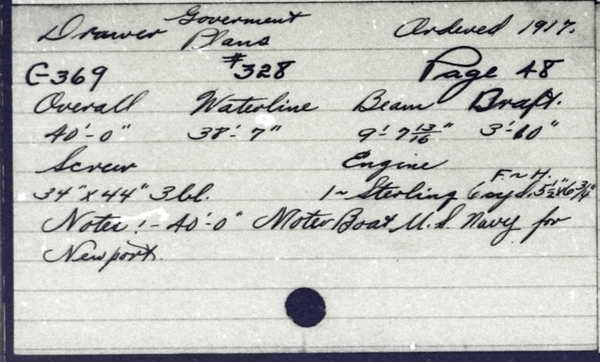 Drawer Goverment Plans Ordered 1917.
C-369 #328 Page 48
Overall Waterline Beam Draft.
40'-0" 38'-7" 9'-7 13/16" 3'-10"
Screw Engine F~H.
34" x 44" 3 bl. 1~ Sterling 6 cyl. 5 1/2" x 6 3/4"
Notes:- 40'-0" Motor Boat U.S. Navy for
Newport.